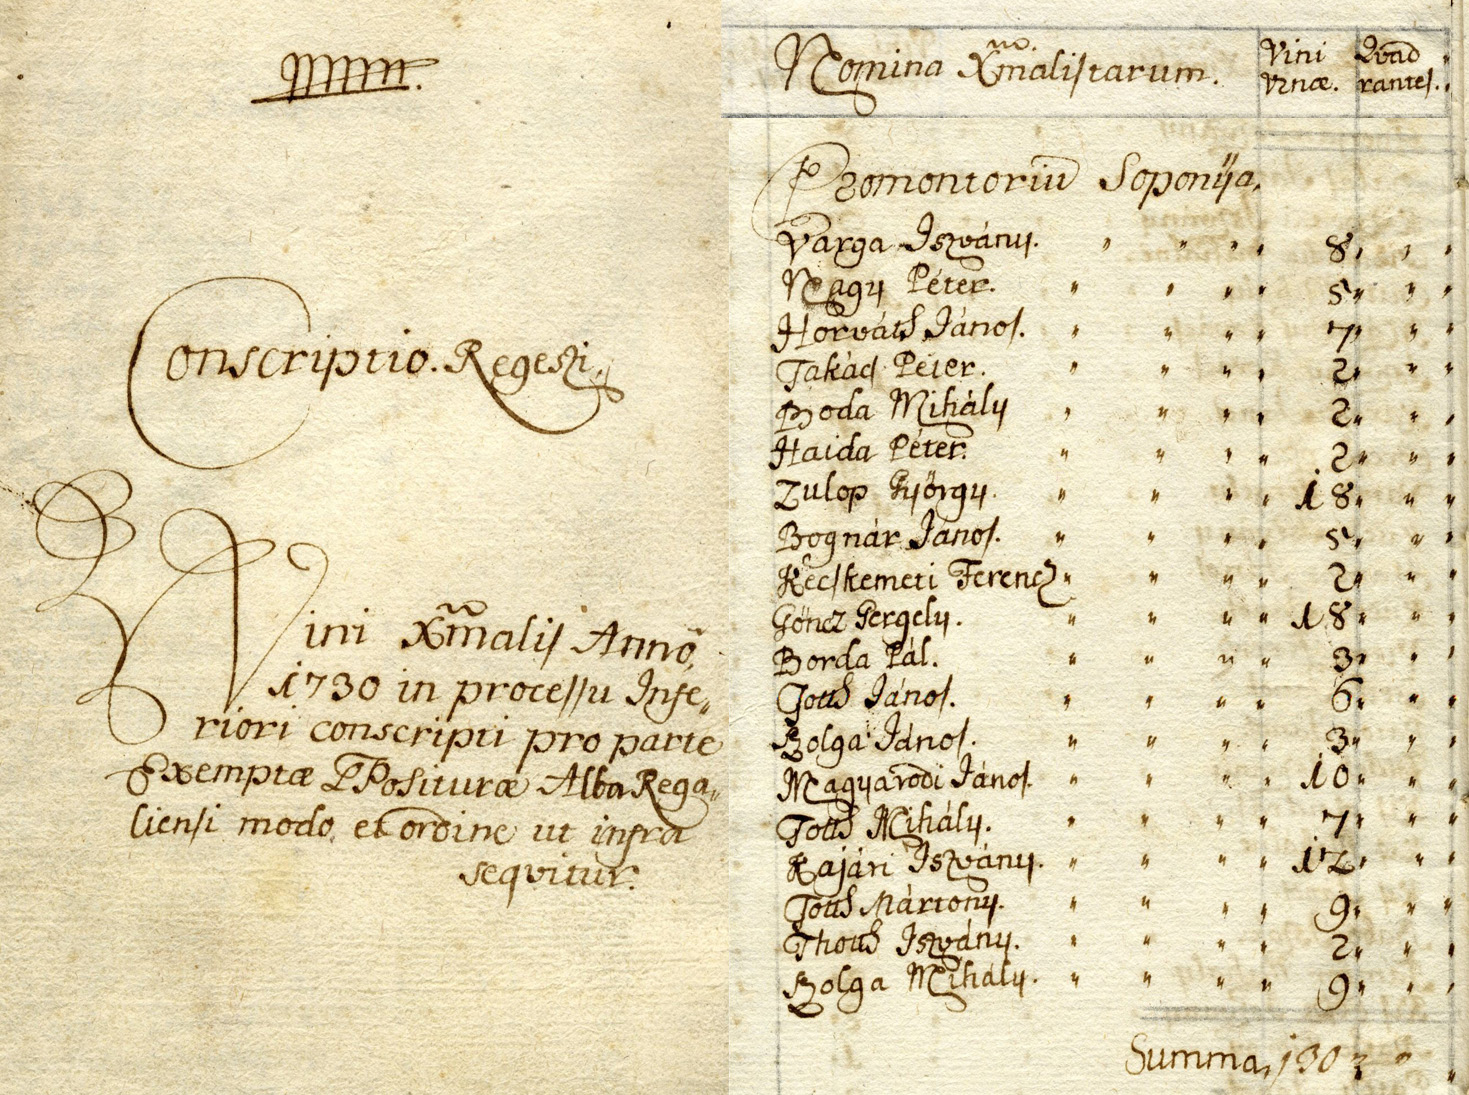 Conscriptio. Regeszi.
Vini Xmalis Anno,
1730 in processu Infe„
riori conscripti pro parte
Exemptæ PPosituræ Alba Rega„
liensi modo, et ordine ut infra
seqvitur.
Nomina Xmalistarum.
Vini Vrnæ.
Qvad rantes.
Promontoriu Soponÿa.
Varga Iszvány. 8
Nagy Péter. 5
Horváth János. 7
Takács Péter. 2
Boda Mihály 2
Haida Péter. 2
Zulop György. 18
Bognár János. 5
Kecskemeti Ferencz 2
Göncz Gergely. 18
Borda Pál. 3
Toth János. 6
Bolga János. 3
Magyarodi János. 10
Toth Mihály. 7
Kajári Iszvány. 12
Toth Mártony. 9
Thoth Iszvány. 2
Bolga Mihály. 9
Summa, 130